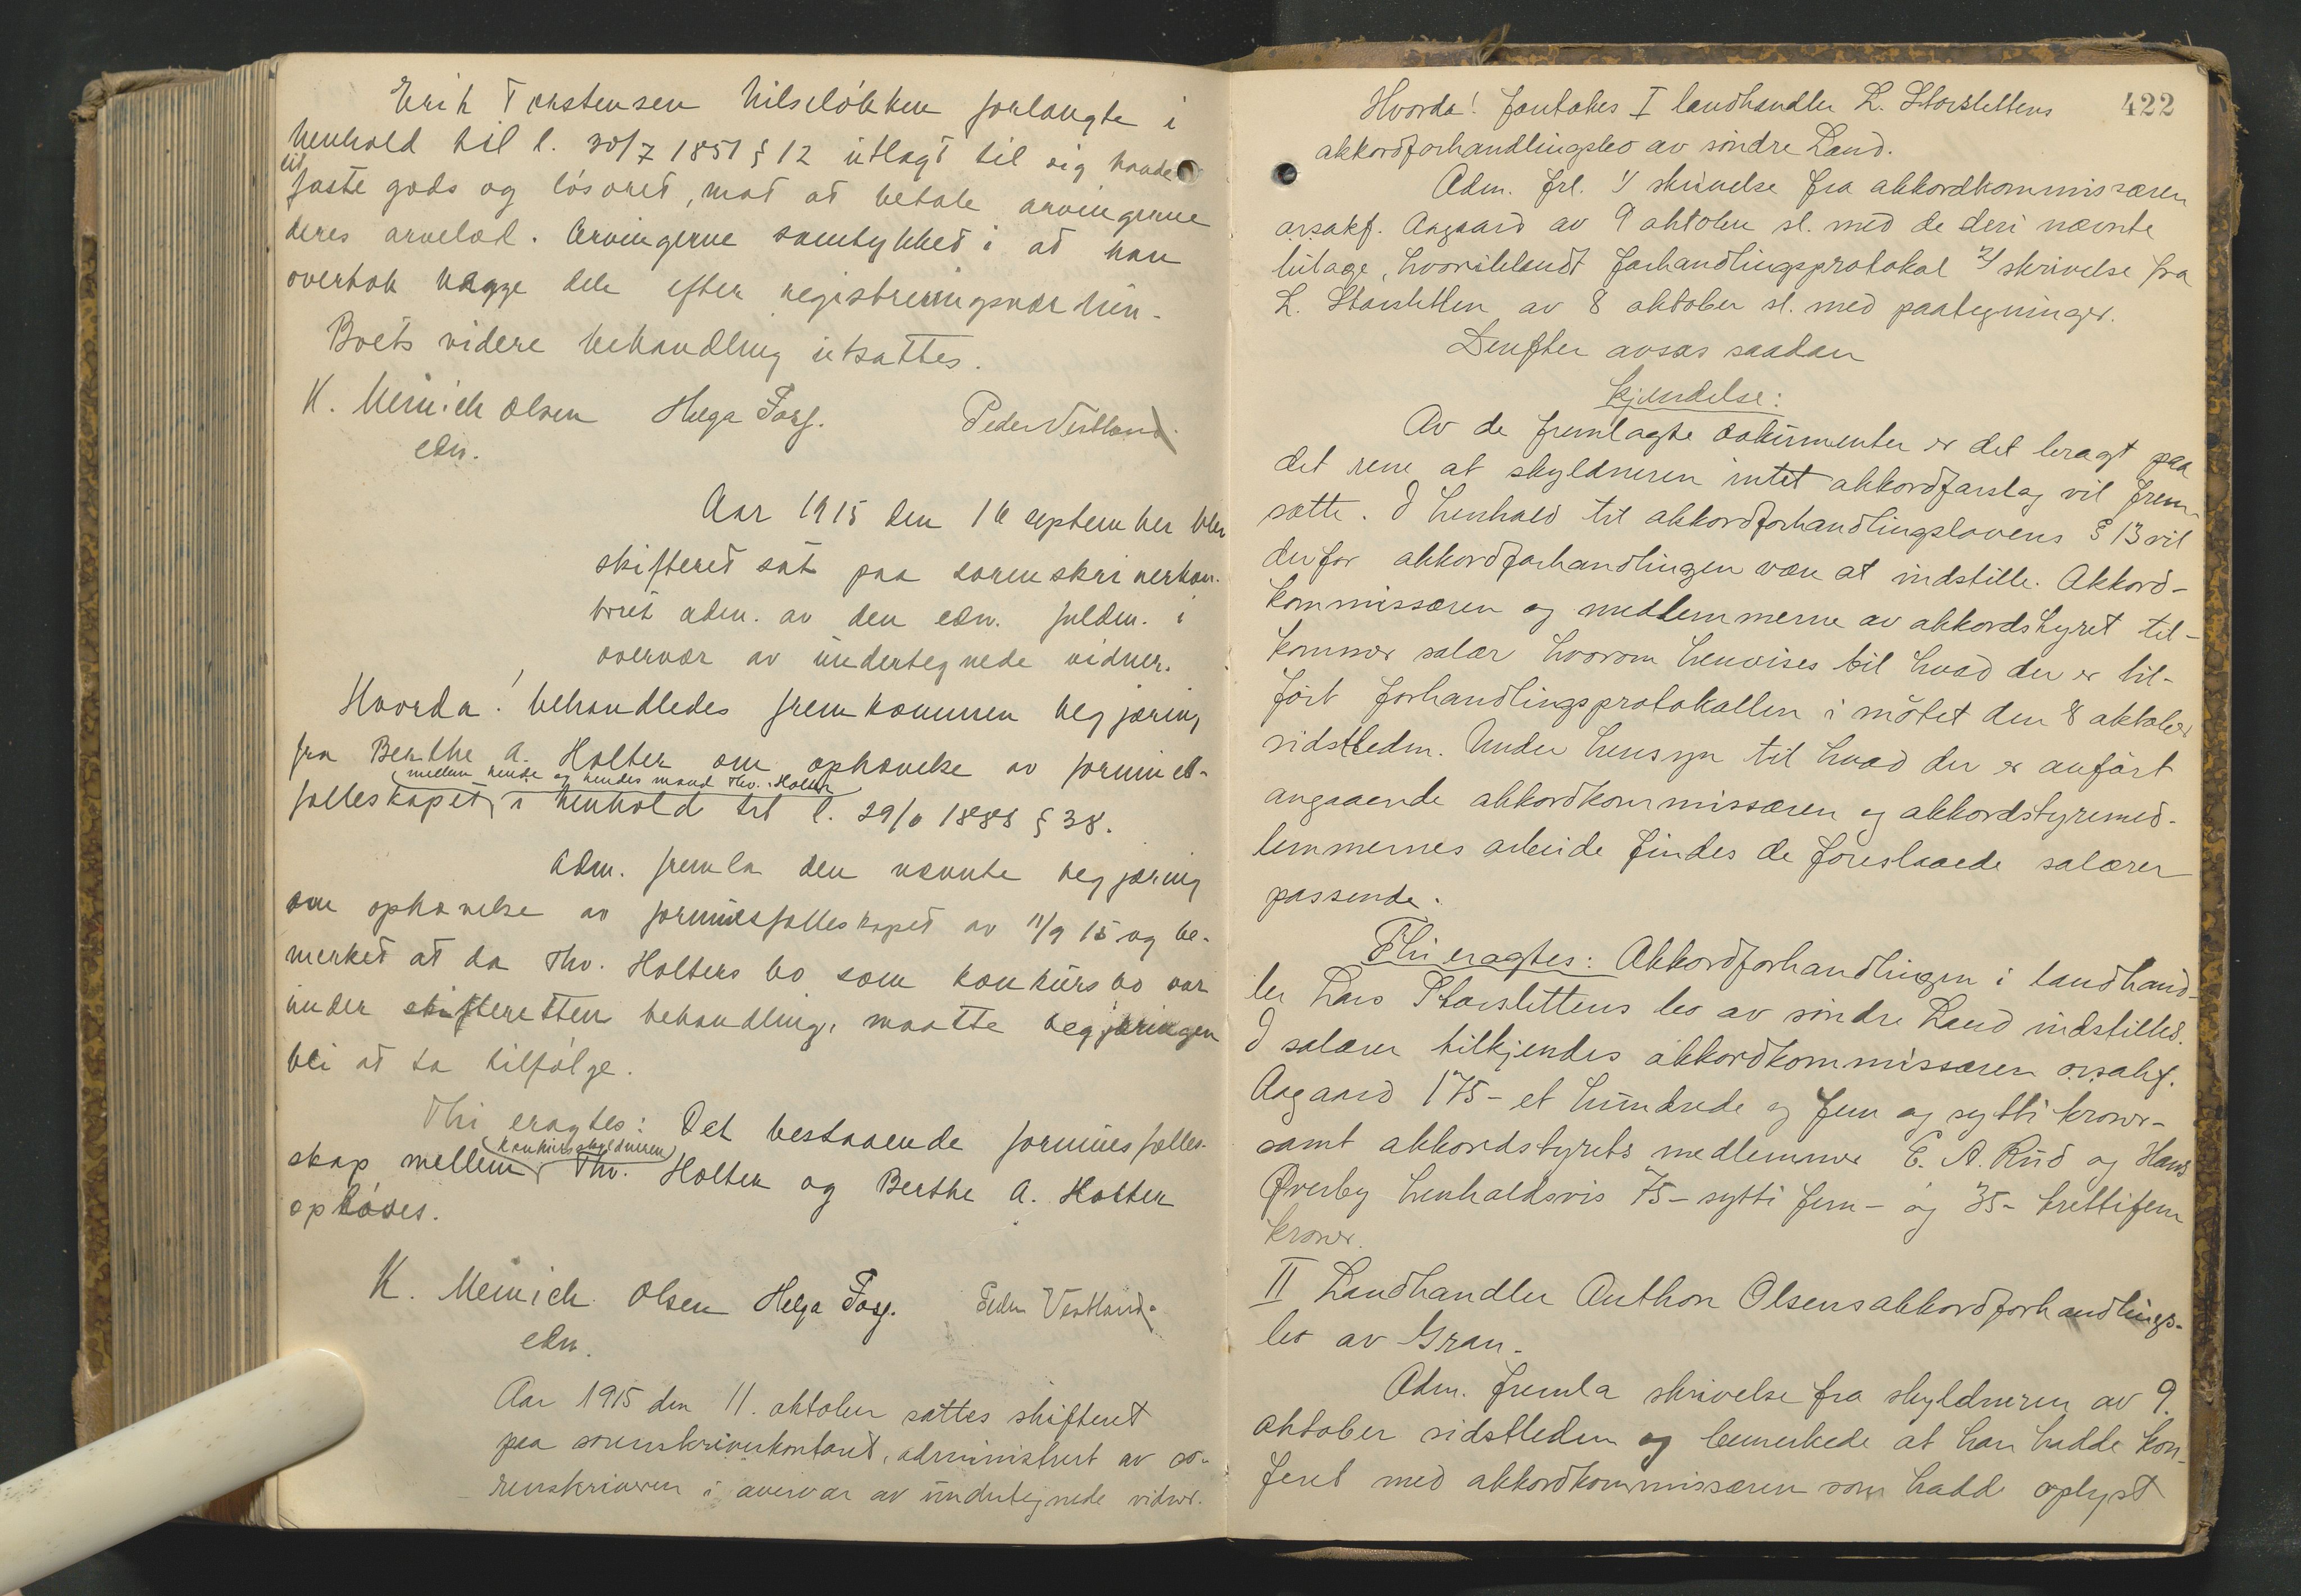 Erik Torstensen Nilseløkken forlangte i
henhold til l. 30/7 1851 § 12 utlagt til sig baade
ut
faste gods og løsøret, mot at betale arvingerne
deres arvelod. Arvingerne samtykket i at han
overtok begge dele efter registreringsværdien.
Boets videre behandling utsattes.
K. Meinich Olsen Helga Fosf. Peder Vestland
edsv.
Aar 1915 den 16 september blev
skifteret sat paa sorenskriverkon-
toret adm. av den edsv. fuldm. i
overvær av undertegnede vidner.
Hvorda! behandledes fremkommen begjæring
fra Berthe A. Holter om ophævelse av formues-
mellem hende og hendes mand Thv. Holter
fælleskapet i henhold til l. 29/6 1888 § 38.
Adm. fremla den nævnte begjæring
om ophævelse av formuesfælleskapet av 11/9 15 og be-
merket at da Thv. Holters bo som konkursbo var
under skifterettens behandling, maatte begjæringen
bli at ta tilfølge.
Thi eragtes: Det bestaaende formuesfælles-
konkursskyldneren
skap mellem Thv. Holter og Berthe A. Holter
opløses.
K. Meinich Olsen Helga Fosf. Peder Vestland
edsv.
Aar 1915 den 11. oktober sattes skifteret
paa sorenskriverkontoret, administrert av so-
renskriveren i overvær av undertegnede vidner.
422
Hvorda! foretokes I landhandler L. Storslettens
akkordforhandlingsbo av søndre Land.
Adm. frl. 1) skrivelse fra akkordkommissæren
o.r.sakf. Aagaard av 9 oktober sl. med de deri nævnte
bilage, hvoriblandt forhandlingsprotokol 2) skrivelse fra
L. Storsletten av 8 oktober sl. med paategninger.
Derefter avsas saadan
kjendelse:
Av de fremlagte dokumenter er det bragt paa
det rene at skyldneren intet akkordforslag vil frem-
sætte. I henhold til akkordforhandlingslovens § 13 vil
derfor akkordforhandlingen være at indstille. Akkord-
kommissæren og medlemmerne av akkordstyret til-
kommer salær hvorom henvises til hvad der er til-
ført forhandlingsprotokollen i møtet den 8 oktober
sidstledn. Under hensyn til hvad der er anført
angaaende akkordkommissæren og akkordstyremed-
lemmernes arbeide findes de foreslaaede salærer
passende.
Thi eragtes: Akkordforhandlingen i landhand-
ler Lars Storslettens bo av søndre Land indstilles.
I salærer tilkjendes akkordkommissæren o.r.sakf.
Aagaard 175 - et hundrede og fem og sytti kroner -
samt akkordstyrets medlemmer E. A. Rud og Hans
Øverby henholdsvis 75 - sytti fem - og 35 - trettifem
kroner.
II Landhandler Anthon Olsens akkordforhandlings-
bo av Gran.
Adm. fremla skrivelse fra skyldneren av 9.
oktober sidstleden og bemerkede at han hadde kon-
ferert med akkordkommissæren som hadde oplyst